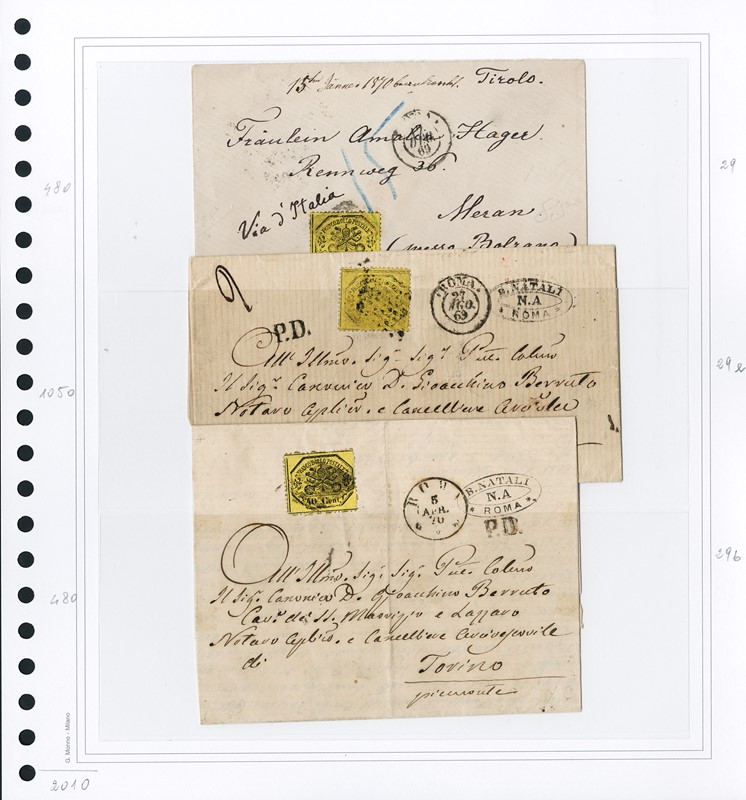 15ten Jänner 1870 beantwortet. Tirolo.
ROMA
69
Fräulein Amalia Hager.
Rennweg 36.
15
Via d'Italia
Meran.
(presso Bolzano
480
29
FRANCO BOLLO POSTALE
9
P.D.
ROMA
27
AGO.
69
B. NATALI
N.A
ROMA
All' Illmo. Sigr. Sigr. Pne. Colmo
Il Sigr. Canonico D. Gioacchino Berruto
Notaro Applico. e Cancelliere Arcivle
1050
29a
FRANCO BOLLO POSTALE
40 Cent
ROMA
5
APR.
70
B. NATALI
N.A
ROMA
P.D.
All' Illmo. Sigr. Sigr. Pne. Colmo
Il Sigr. Canonico D. Gioacchino Berruto
Cavre. de SS. Maurizio e Lazzaro
Notaro Applico. e Cancelliere Arcivescovile
di Torino
piemonte
480
29b
G. Monno - Milano
2010